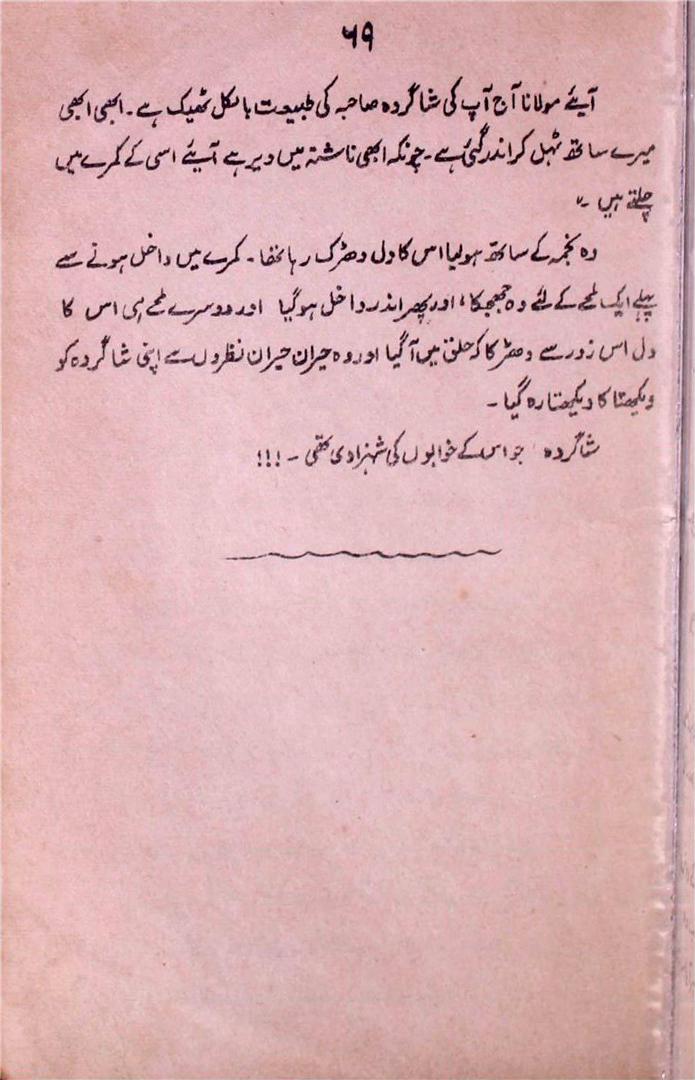 ۶۹
آیئے مولانا آج آپ کی شاگردہ صاحبہ کی طبیعت بالکل ٹھیک ہے۔ ابھی ابھی
میرے ساتھ ٹہل کر اندر گئی ہے۔ چونکہ ابھی ناشتہ میں دیر ہے آیئے اسی کے کمرے میں
چلتے ہیں۔"
وہ نجمہ کے ساتھ ہولیا اس کا دل دھڑک رہا تھا۔ کمرے میں داخل ہونے سے
پہلے ایک لمحے کے لئے وہ جھجکا، اور پھر اندر داخل ہوگیا اور دوسرے لمحے ہی اس کا
دل اس زور سے دھڑکا کہ حلق میں آ گیا اور وہ حیران حیران نظروں سے اپنی شاگردہ کو
دیکھتا کا دیکھتا رہ گیا۔
شاگردہ جو اس کے خوابوں کی شہزادی تھی۔!!!